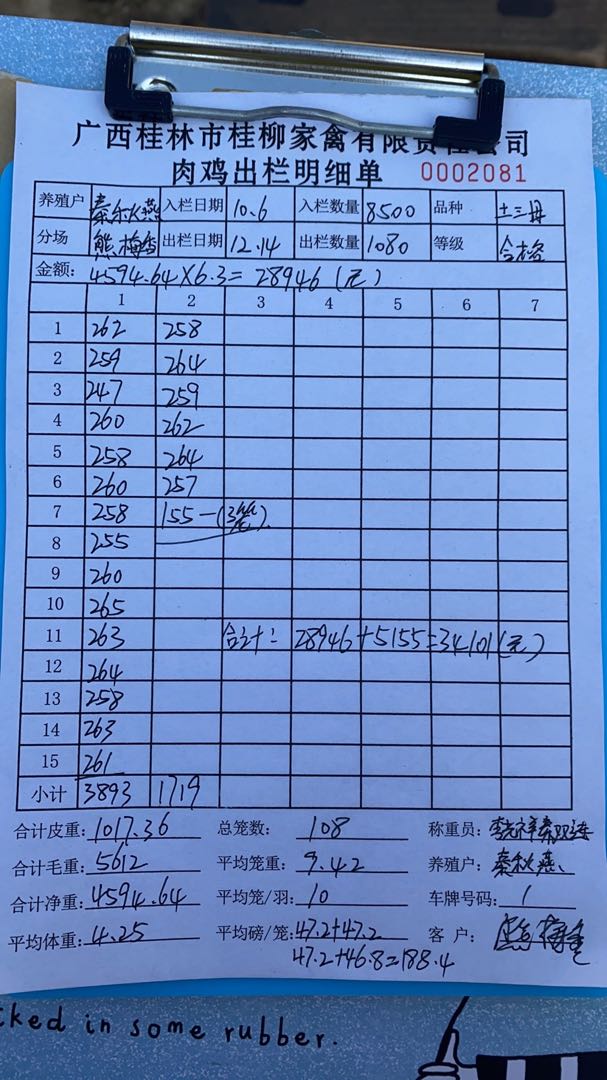 广西桂林市桂柳家禽有限责任公司
肉鸡出栏明细单 0002081
养殖户 秦秋燕 入栏日期 10.6 入栏数量 8500 品种 土三月
分场 熊梅 出栏日期 12.14 出栏数量 1080 等级 合格
金额: 4594.64×6.3=28946(元)
1 2 3 4 5 6 7
1 262 258
2 259 264
3 247 259
4 260 262
5 258 264
6 260 257
7 258 155-(3笼)
8 255
9 260
10 265
11 263 合计: 28946+5155=34101(元)
12 264
13 258
14 263
15 261
小计 3893 1719
合计皮重: 1017.36 总笼数: 108 称重员:
合计毛重: 5612 平均笼重: 9.42 养殖户: 秦秋燕
合计净重: 4594.64 平均笼/羽: 10 车牌号码: 1
平均体重: 4.25 平均磅/笼: 47.2+47.2 客 户: 熊梅
47.2+46.8=188.4
cked in some rubber.